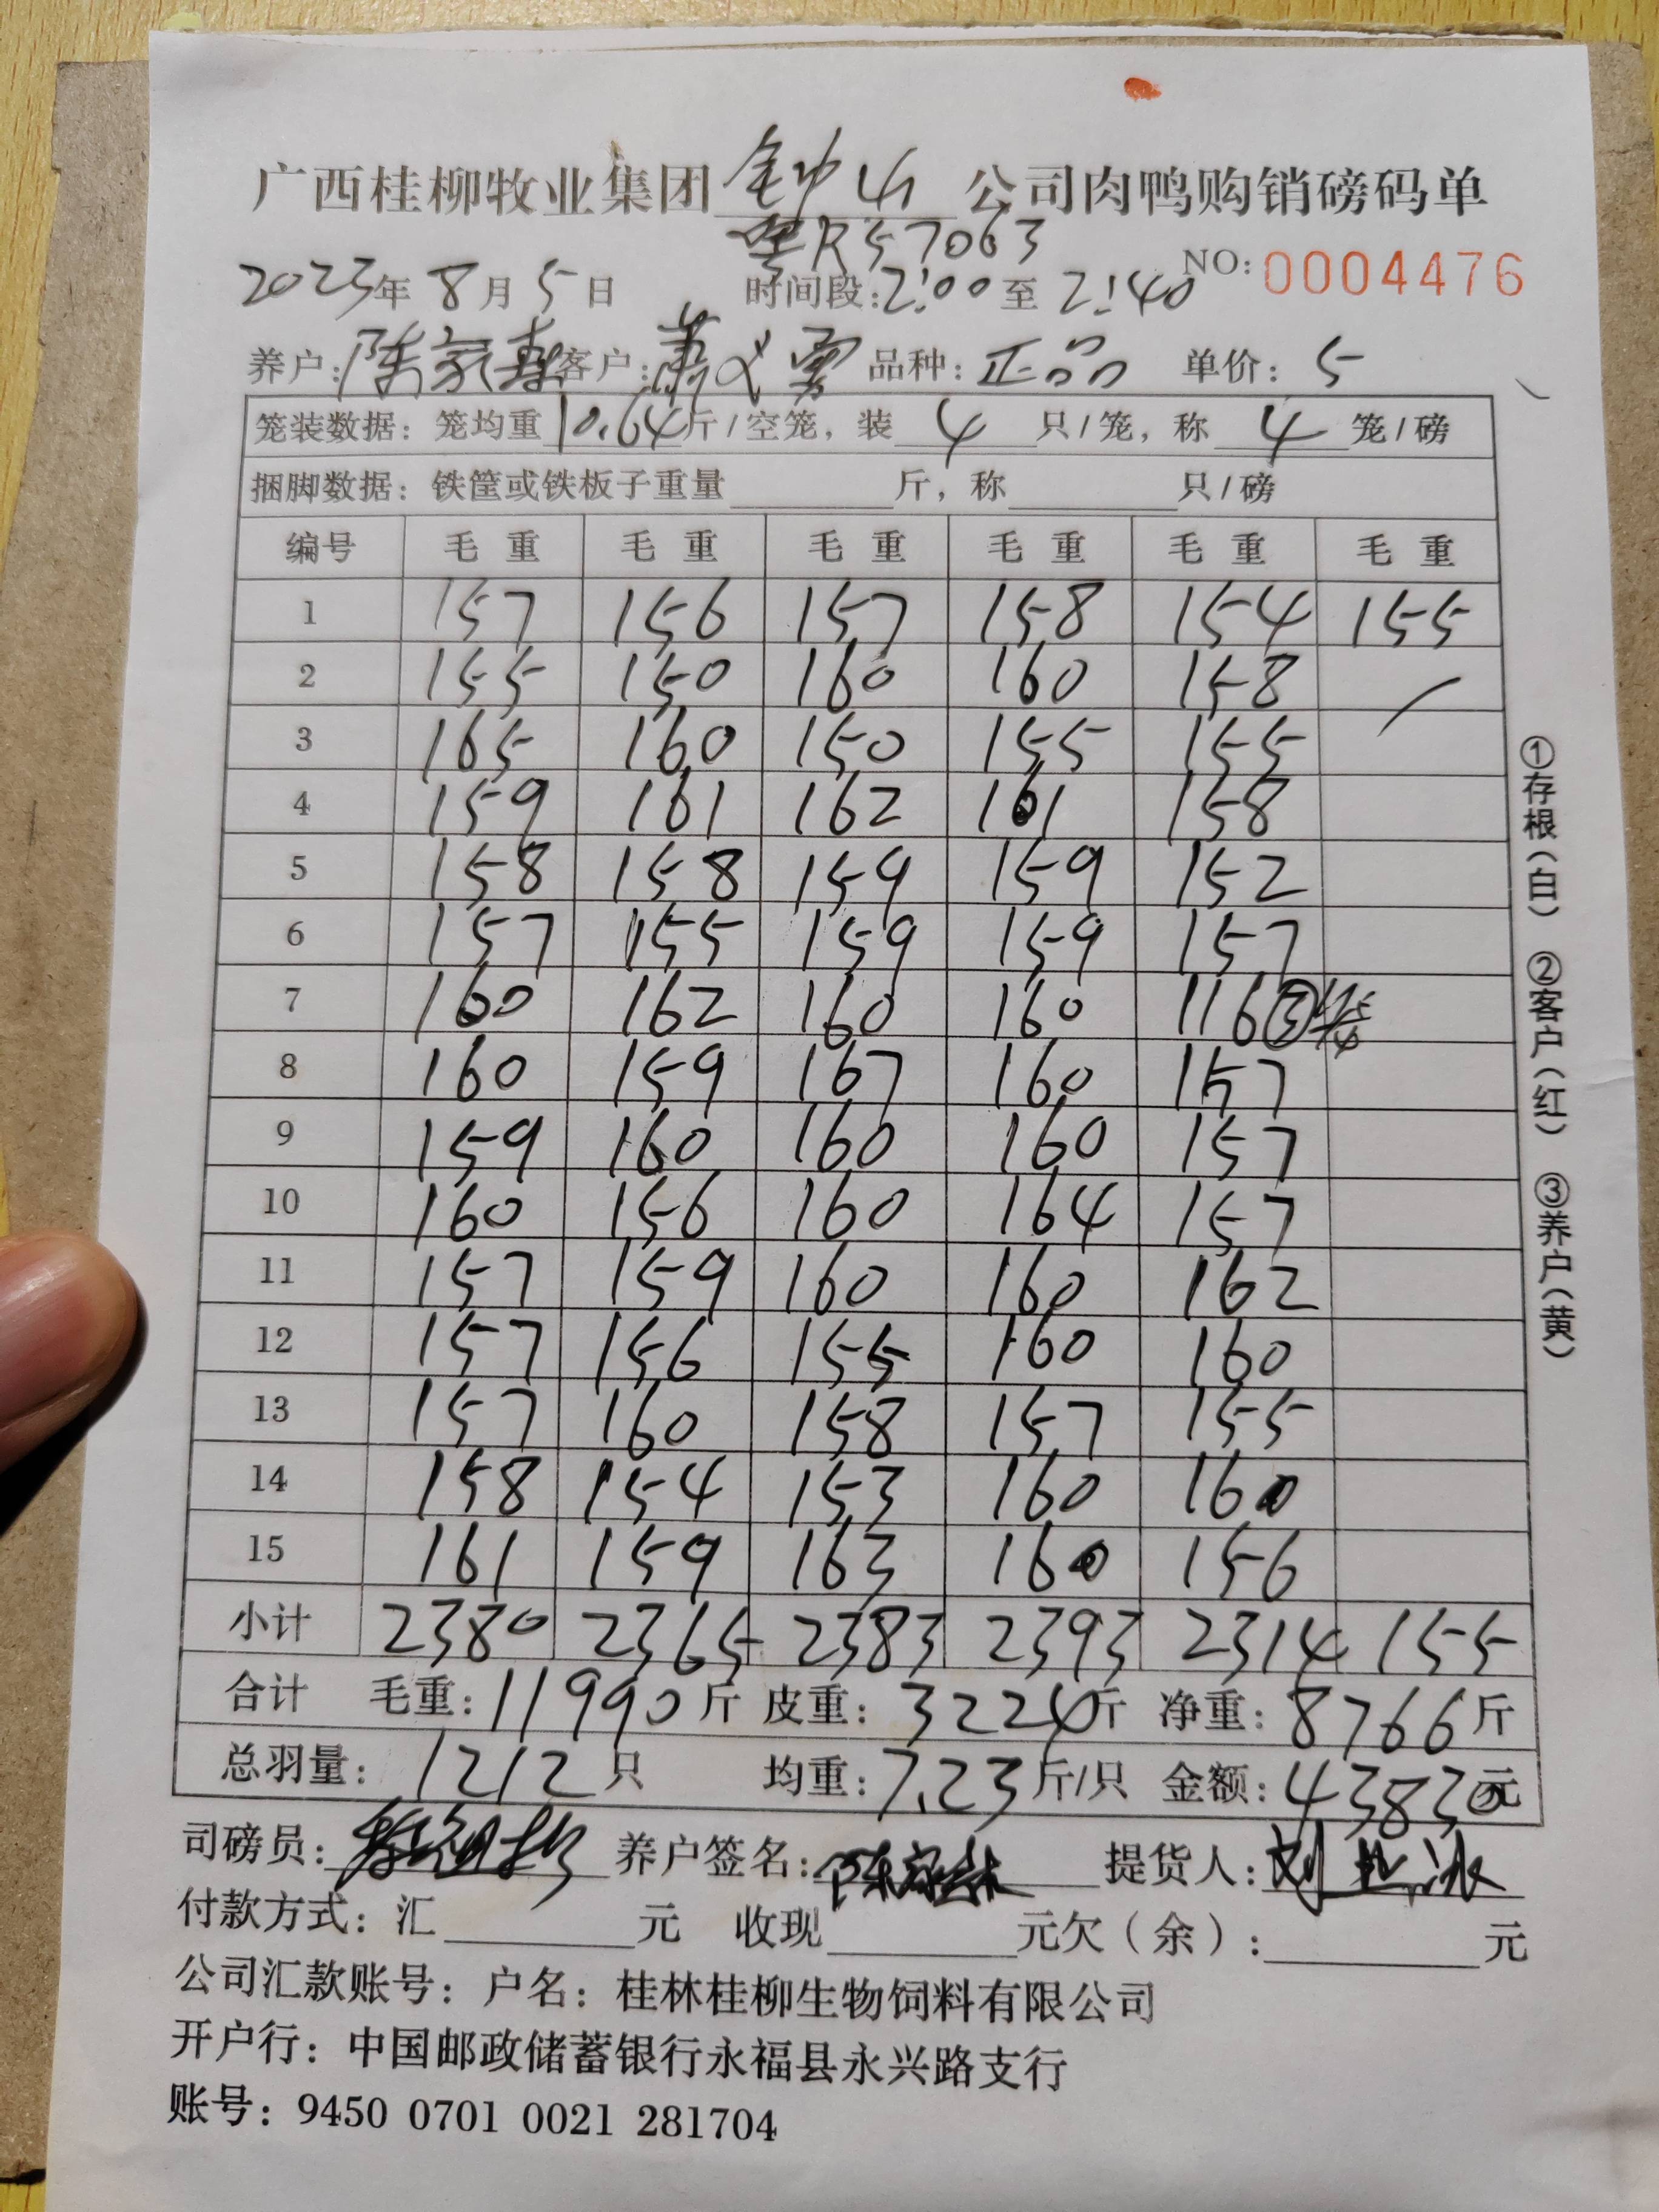 广西桂柳牧业集团 钟山 公司肉鸭购销磅码单
粤R57063
NO: 0004476
2023年 8月 5日 时间段: 2:00 至 2:40
养户: 陈家 客户: 萧 品种: 正品 单价: 5
笼装数据: 笼均重 10.64 斤/空笼, 装 4 只/笼, 称 4 笼/磅
捆脚数据: 铁筐或铁板子重量 斤, 称 只/磅
编号 毛重 毛重 毛重 毛重 毛重 毛重
1 157 156 157 158 154 155
2 155 150 160 160 158
3 165 160 150 155 155
4 159 161 162 161 158
5 158 158 159 159 152
6 157 155 159 159 157
7 160 162 160 160 116 ③
8 160 159 167 160 157
9 159 160 160 160 157
10 160 156 160 164 157
11 157 159 160 160 162
12 157 156 155 160 160
13 157 160 158 157 155
14 158 154 153 160 160
15 161 159 163 160 156
小计 2380 2365 2383 2393 2314 155
合计 毛重: 11990 斤 皮重: 3224 斤 净重: 8766 斤
总羽量: 1212 只 均重: 7.23 斤/只 金额: 43830 元
司磅员: 养户签名: 陈家 提货人: 刘
付款方式: 汇 元 收现 元欠(余): 元
公司汇款账号: 户名: 桂林桂柳生物饲料有限公司
开户行: 中国邮政储蓄银行永福县永兴路支行
账号: 9450 0701 0021 281704
①存根(白) ②客户(红) ③养户(黄)